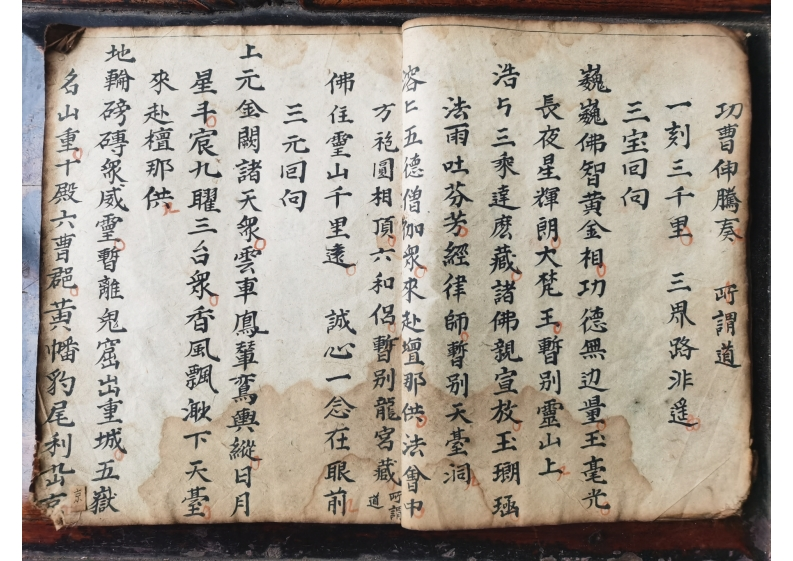 功曹伸騰奏　所謂道
一刻三千里　三界路非遥
三宝回向
巍巍佛智黄金相功德無边量玉毫光
長夜星輝朗大梵王暫別靈山上
浩与三乘達麽藏諸佛親宣放玉瑚
法雨吐芬芳經律師暫別天臺洞
溶上五德僧伽衆來赴壇那供法會中
方袍圓相頂六和侣暫別龍宮藏 所謂道
佛住霊山千里遠　誠心一念在眼前
三元回向
上元金闕諸天衆雲車鳳輦鸞輿縱日月
星斗宸九曜三台衆香風飄渺下天臺
來赴檀那供
地輪磅礡衆威霊暫離鬼窟出重城五嶽
名山重十殿六曹郡黄幡豹尾利
京